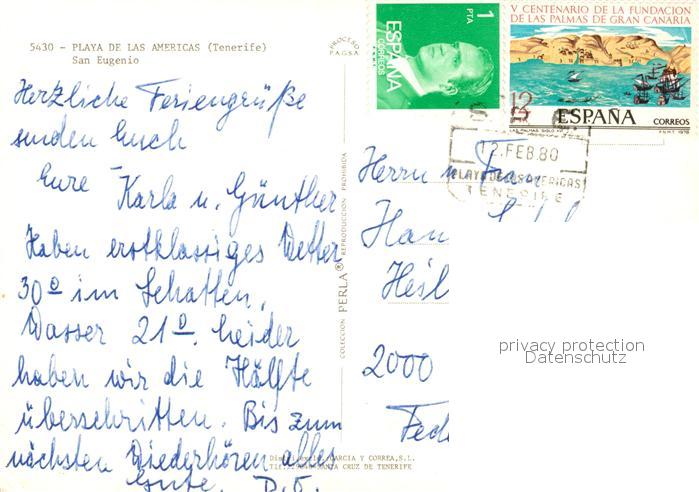 5430 - PLAYA DE LAS AMERICAS (Tenerife)
San Eugenio
Herzliche Feriengrüße
senden Euch
Eure Karla u. Günther
Haben erstklassiges Wetter
30° im Schatten,
Wasser 21°. Leider
haben wir die Hälfte
überschritten. Bis zum
nächsten Wiederhören alles
Gute. D.O.
PROCESO
FAGSA
COLECCION PERLA® REPRODUCCION PROHIBIDA
GARCIA Y CORREA, S.L.
SANTA CRUZ DE TENERIFE
1 PTA
ESPAÑA
CORREOS
V CENTENARIO DE LA FUNDACION
DE LAS PALMAS DE GRAN CANARIA
12
ESPAÑA CORREOS
LAS PALMAS. SIGLO XVI F.N.M.T. 1978
12.FEB.80
PLAYA DE LAS AMERICAS
TENERIFE
Herrn u. Frau
2000
privacy protection
Datenschutz